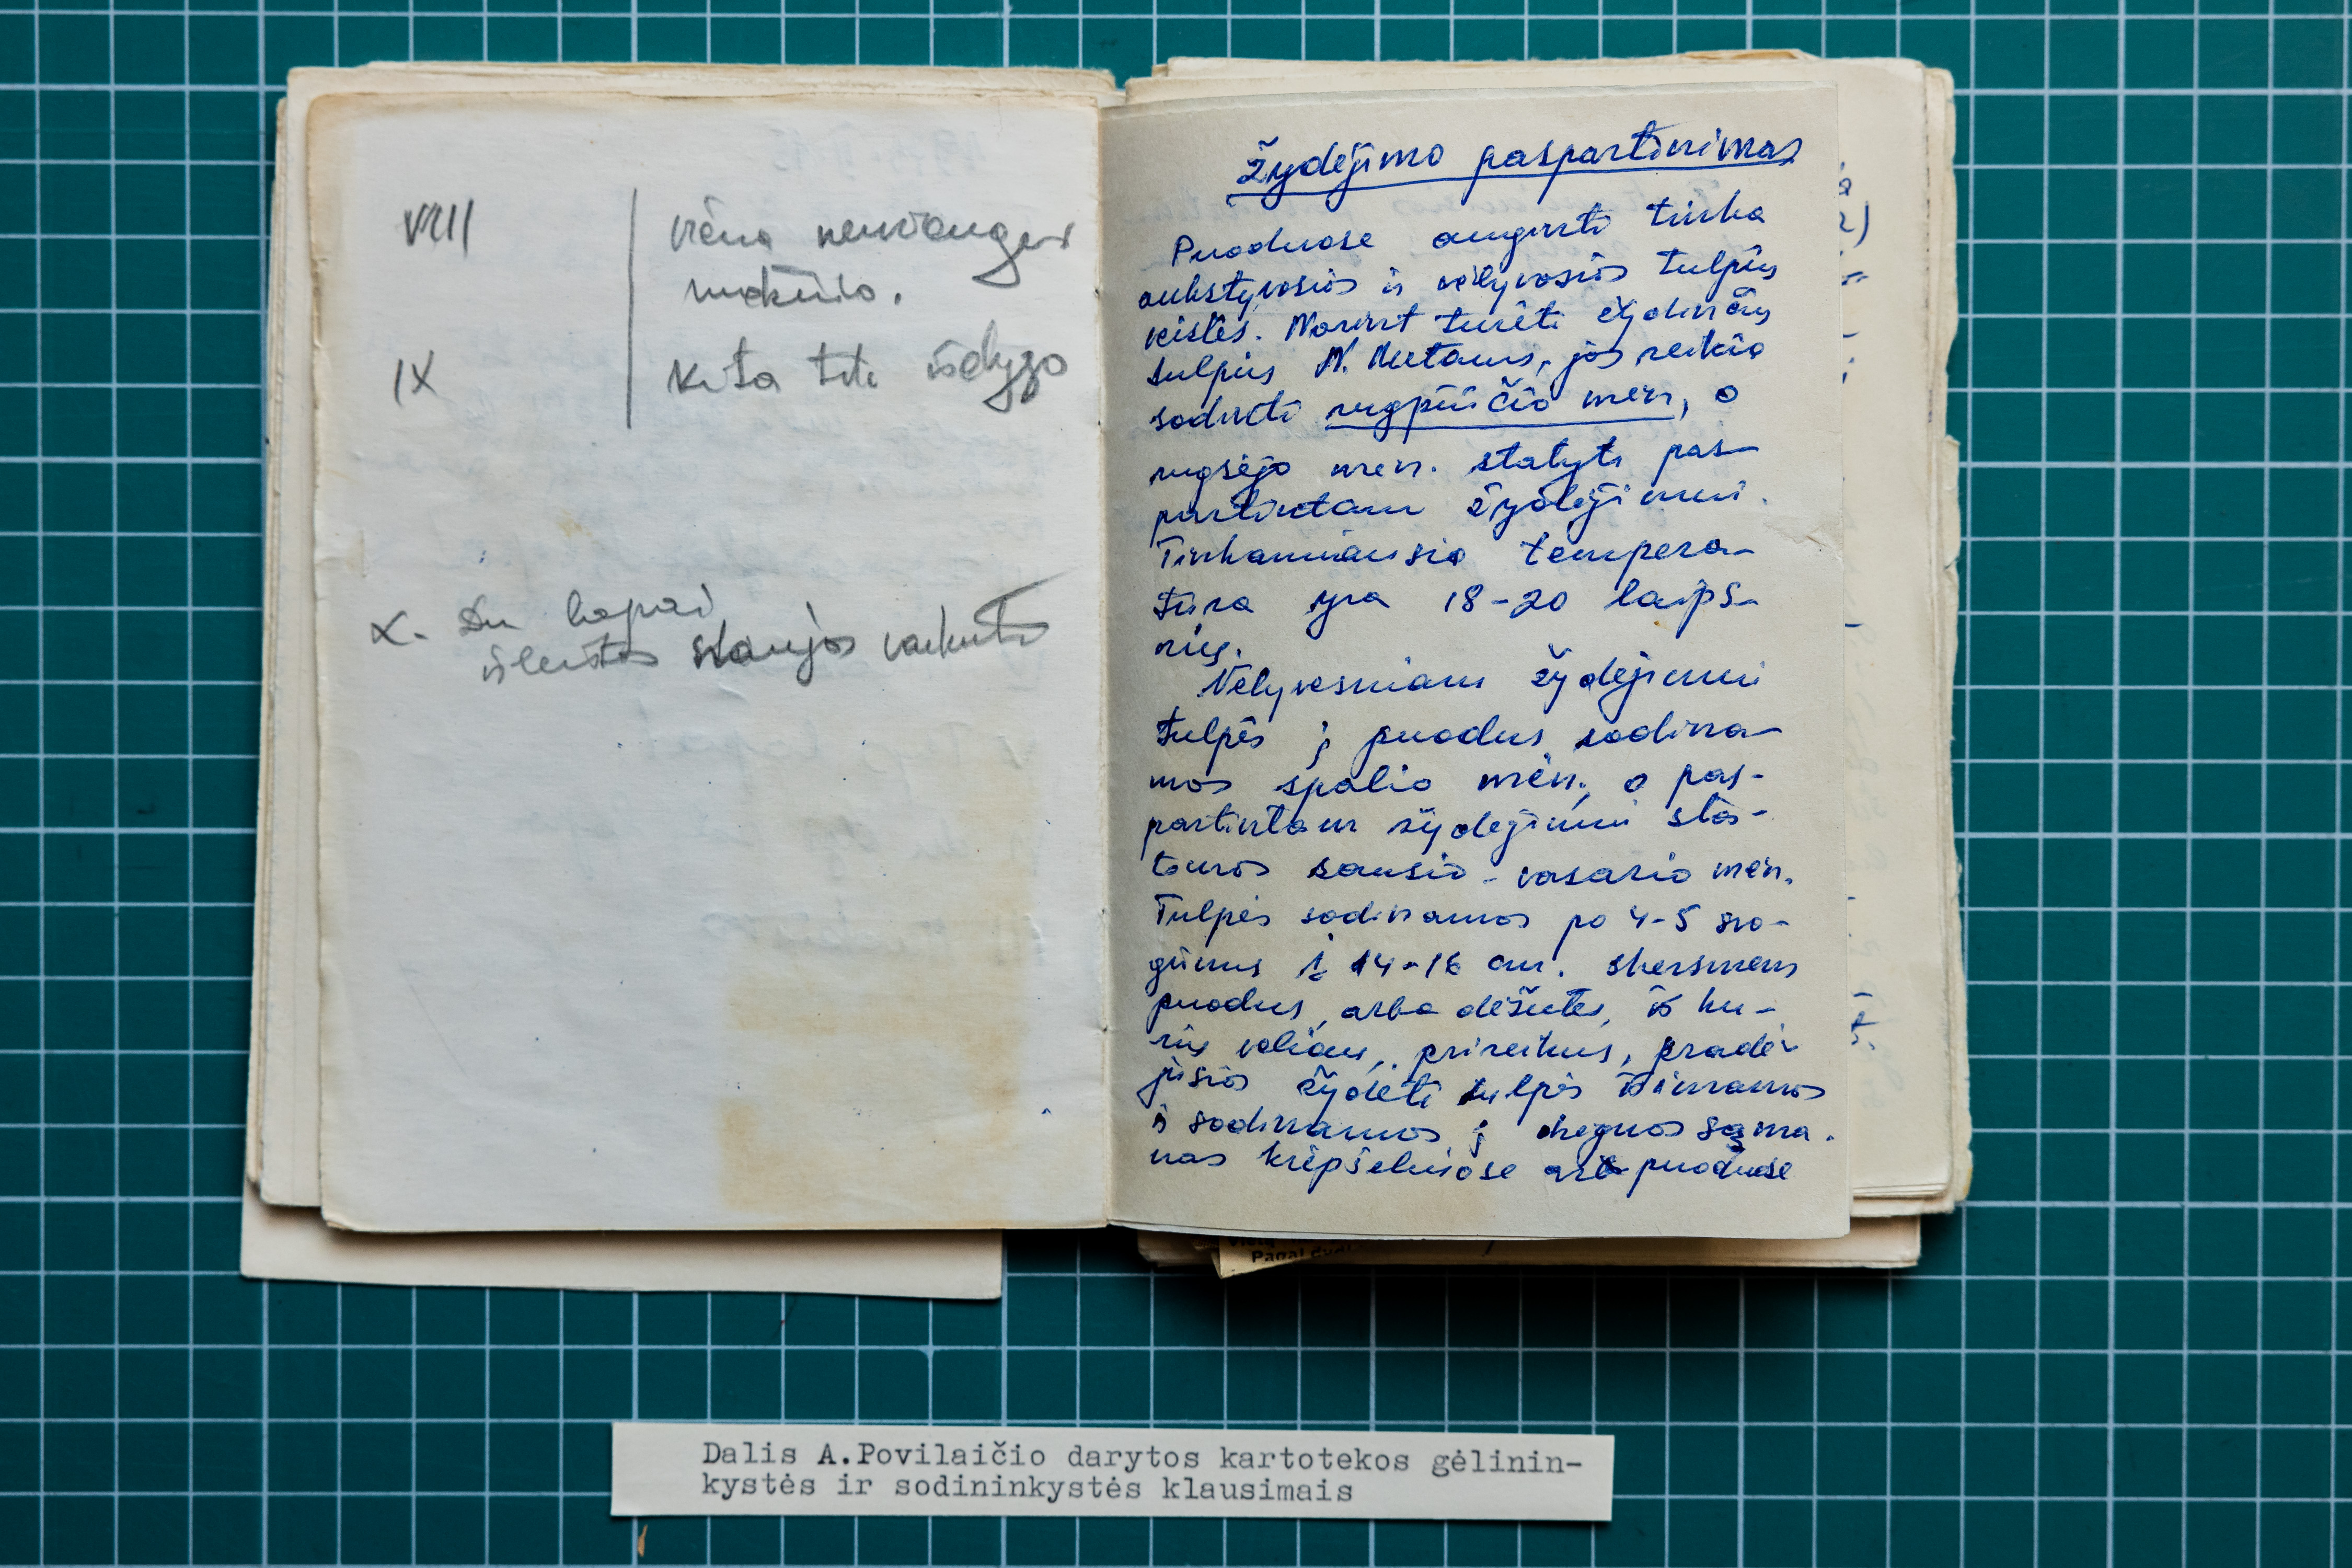 VIII
viena
IX
Kita tik išdygo
X. Du lapai
išleistos naujos
Žydėjimo paspartinimas
Puoduose auginti tinka
ankstyvosios ir vėlyvosios tulpių
veislės. Norint turėti žydinčių
tulpių N. Metams, jas reikia
sodinti rugpiūčio mėn, o
rugsėjo mėn. statyti pas-
partintam žydėjimui.
Tinkamiausia tempera-
tūra yra 18-20 laips-
nių.
Vėlyvesniam žydėjimui
tulpės į puodus sodina-
mos spalio mėn., o pas-
partintam žydėjimui sta-
tomos sausio-vasario mėn.
Tulpės sodinamos po 4-5 svo-
gūnus į 14-16 cm. skersmens
puodus, arba dėžutes, iš ku-
rių vėliau, prireikus, pradė-
jusios žydėti tulpės išimamos
ir sodinamos į drėgnas sama-
nas krepšeliuose arba puoduose
Pagal
Dalis A.Povilaičio darytos kartotekos gėlinin-
kystės ir sodininkystės klausimais